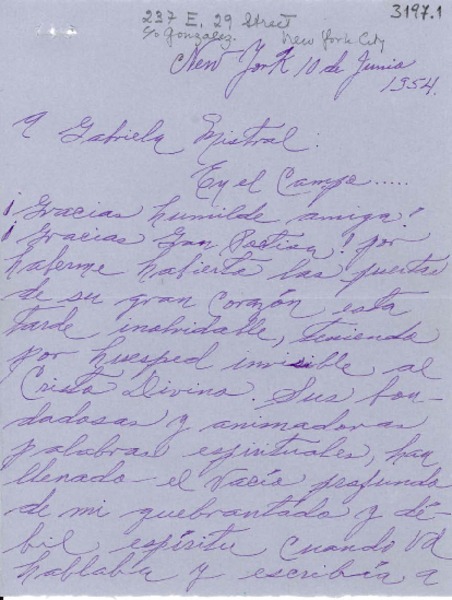 237 E. 29 Street 3197.1
c/o Gonzalez. New York City
New York 10 de Junio
1954.
A Gabriela Mistral:
En el Campo.....
¡Gracias humilde amiga!
¡Gracias Gran Poetisa! por
haberme habierta las puertas
de su gran Corazón, esta
tarde, inolvidable, teniendo
por huesped invisible al
Cristo Divino. Sus bon-
dadosas y animadoras
palabras espirituales, han
llenado el vacío profundo
de mi quebrantado y dé-
bil espíritu cuando Vd
hablaba y escribía a